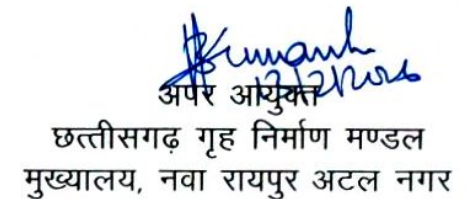 अपर आयुक्त
छत्तीसगढ़ गृह निर्माण मण्डल
मुख्यालय, नवा रायपुर अटल नगर